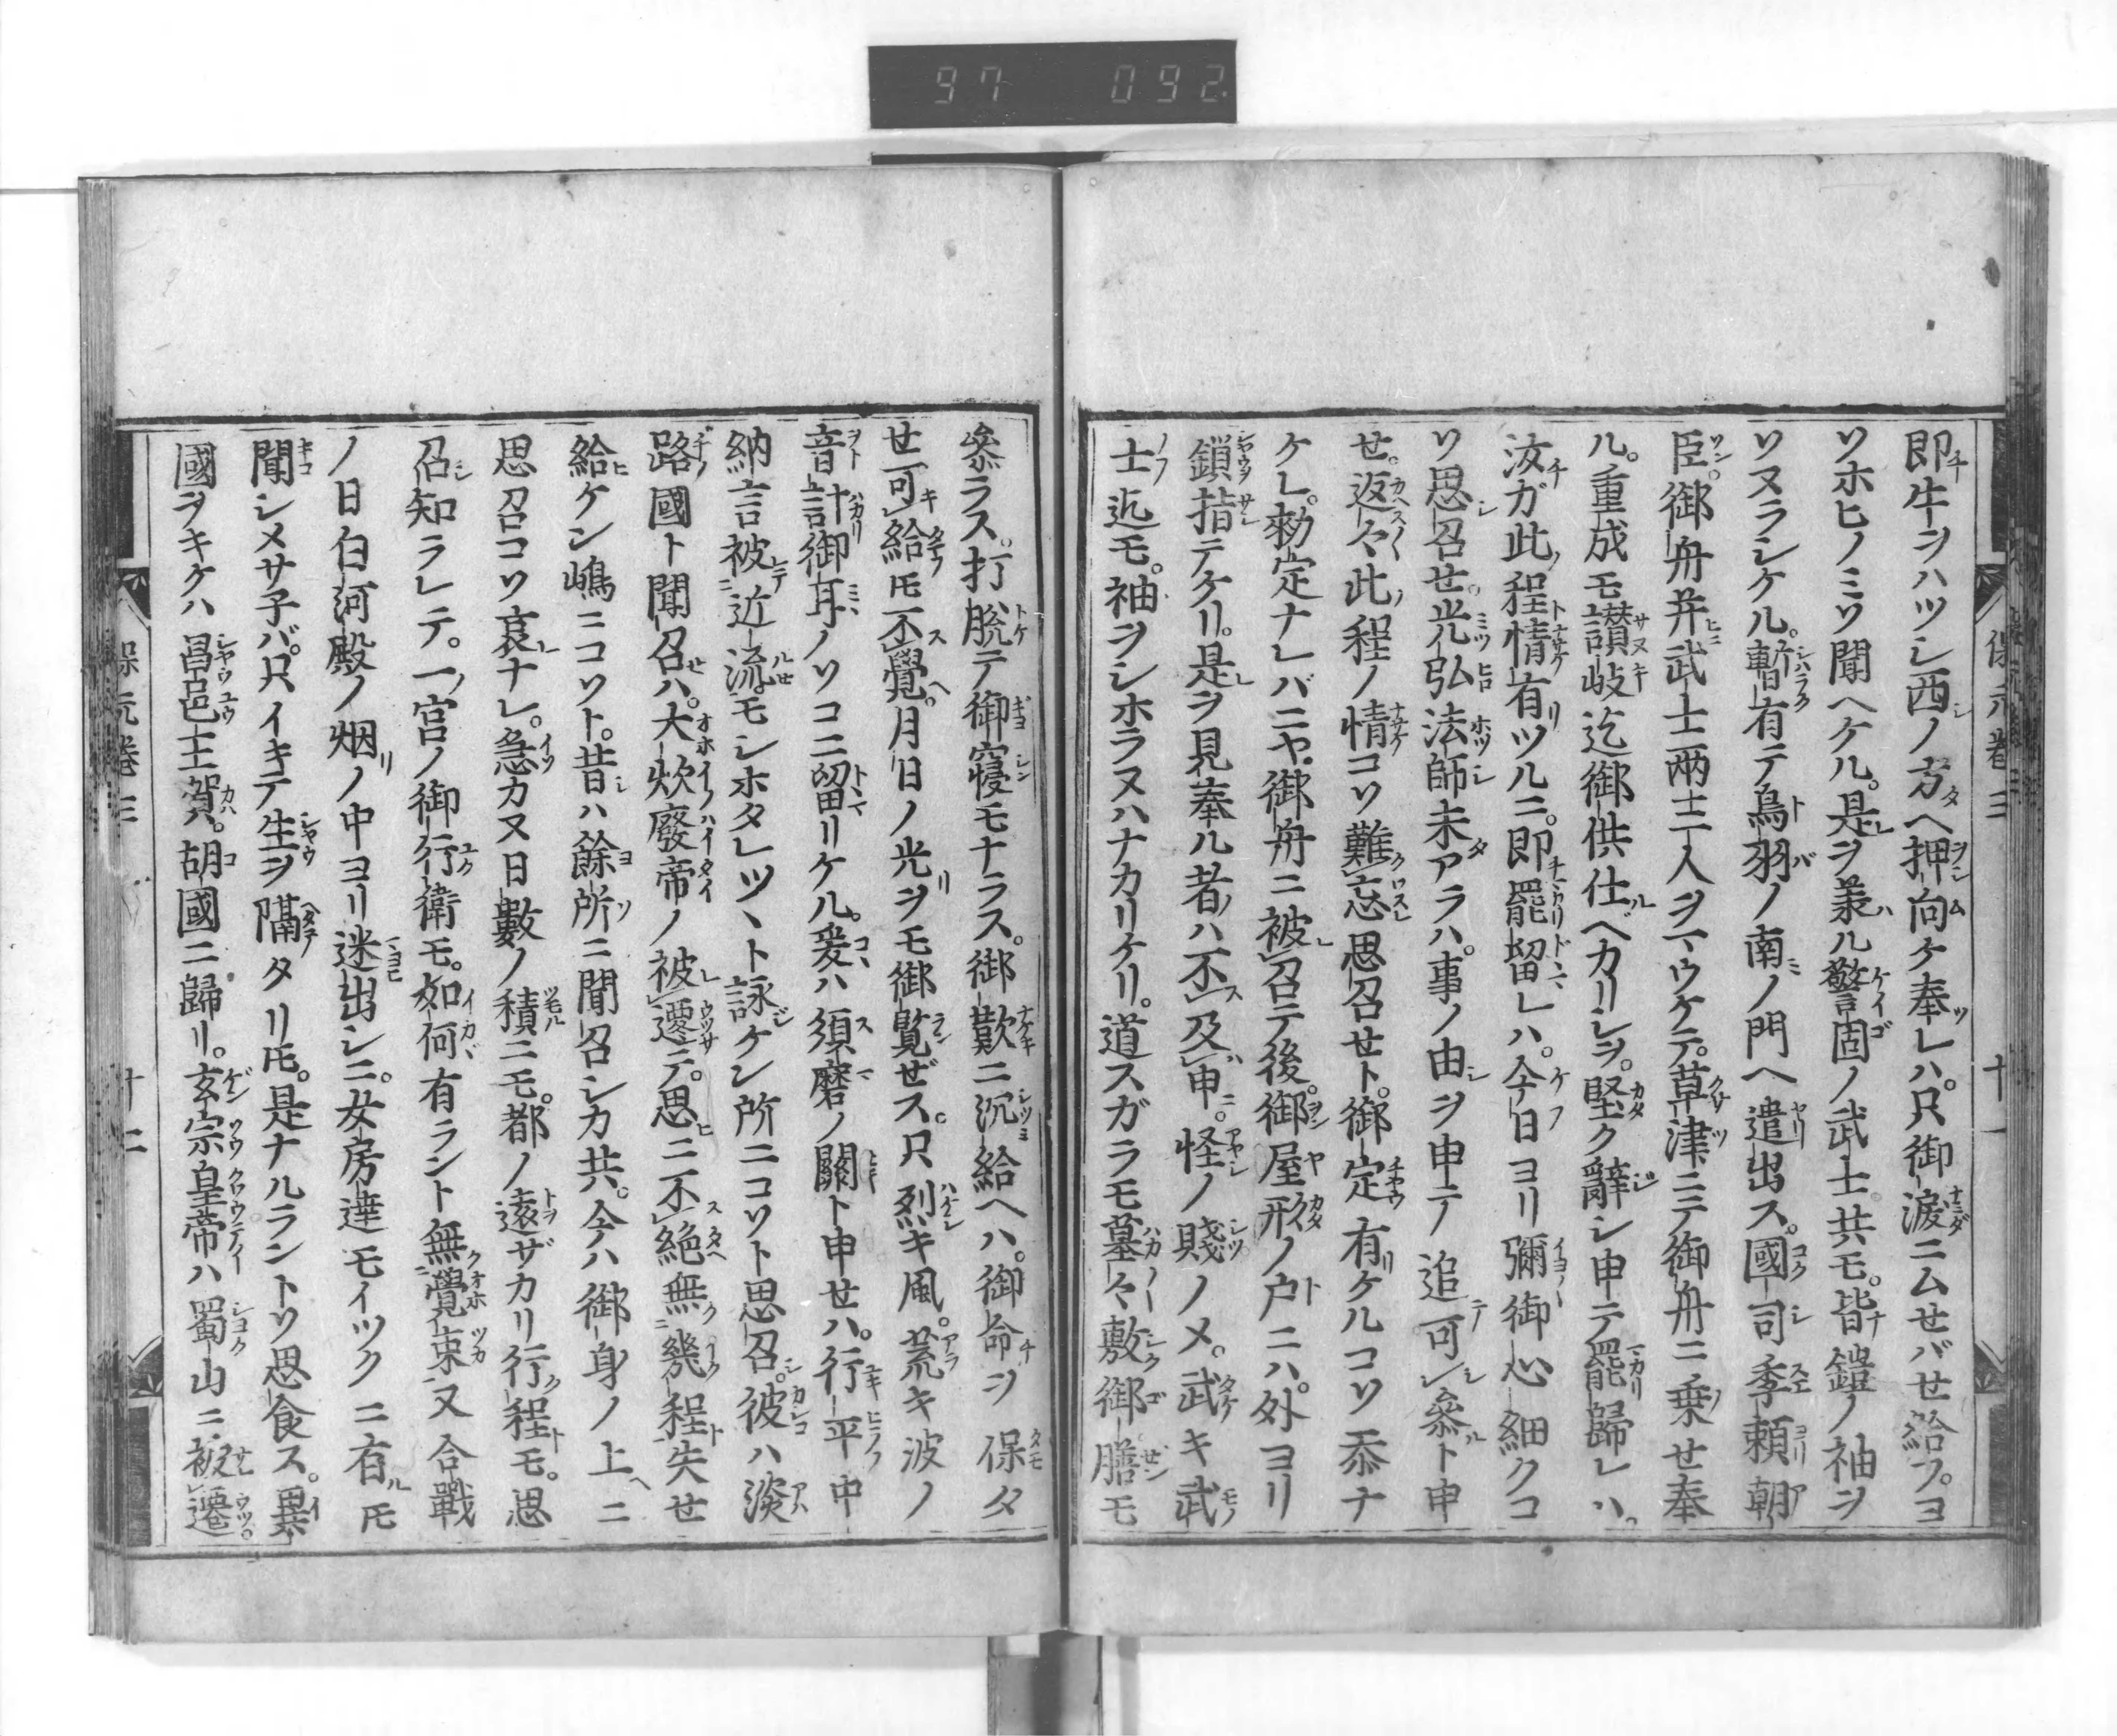 97 092
保元巻三 十一
即牛ヲハツシ西ノ方ヘ押向ケ奉レハ。只御涙ニムせバせ給フヨ
ソホヒノミソ聞ヘケル。是ヲ承ル警固ノ武士共モ。皆鎧ノ袖ヲ
ソヌラシケル。暫有テ鳥羽ノ南ノ門ヘ遣出ス。國司季頼朝
臣。御舟并武士兩三人ヲマウケテ。草津ニテ御舟ニ乗せ奉
ル。重成モ讃岐迄御供仕ヘカリシヲ。堅ク辭シ申テ罷歸レハ。
汝ガ此程情有ツルニ。即罷留レハ。今日ヨリ彌御心細クコ
ソ思召せ。光弘法師未アラハ。事ノ由ヲ申テ追可シ參ト申
せ。返々此程ノ情コソ難忘思召セト。御定有ケルコソ忝ナ
ケレ。勅定ナレバニヤ。御舟ニ被召テ後。御屋形ノ戸ニハ。外ヨリ
鎖指テケリ。是ヲ見奉ル者ハ不及申。怪ノ賤ノメ。武キ武
士迄モ。袖ヲシホラヌハナカリケリ。道スガラモ墓々敷御膳モ
參ラス。打脱テ御寝モナラス。御歎ニ沉給ヘハ。御命ヲ保タ
せ可給モ不覺。月日ノ光ヲモ御覧ぜス。只烈キ風。荒キ波ノ
音計御耳ノソコニ留リケル。爰ハ須磨ノ關ト申せハ。行平中
納言被近流モシホタレツヽト詠ケン所ニコソト思召。彼ハ淡
路國ト聞召ハ。大炊廢帝ノ被遷テ。思ニ不絶無幾程失せ
給ケン嶋ニコソト。昔ハ餘所ニ聞召シカ共。今ハ御身ノ上ニ
思召コソ哀ナレ。急カヌ日數ノ積ニモ。都ノ遠ザカリ行程モ。思
召知ラレテ。一宮ノ御行衛モ。如何有ラント無覺束又合戰
ノ日白河殿ノ烟ノ中ヨリ迷出シニ。女房達モイツクニ有ルモ
聞シメサ子バ。只イキテ生ヲ隔タリ𪜈。是ナルラントソ思食ス。異
國ヲキケハ昌邑王賀。胡國ニ歸リ。玄宗皇帝ハ蜀山ニ被遷。
保元巻三 十二